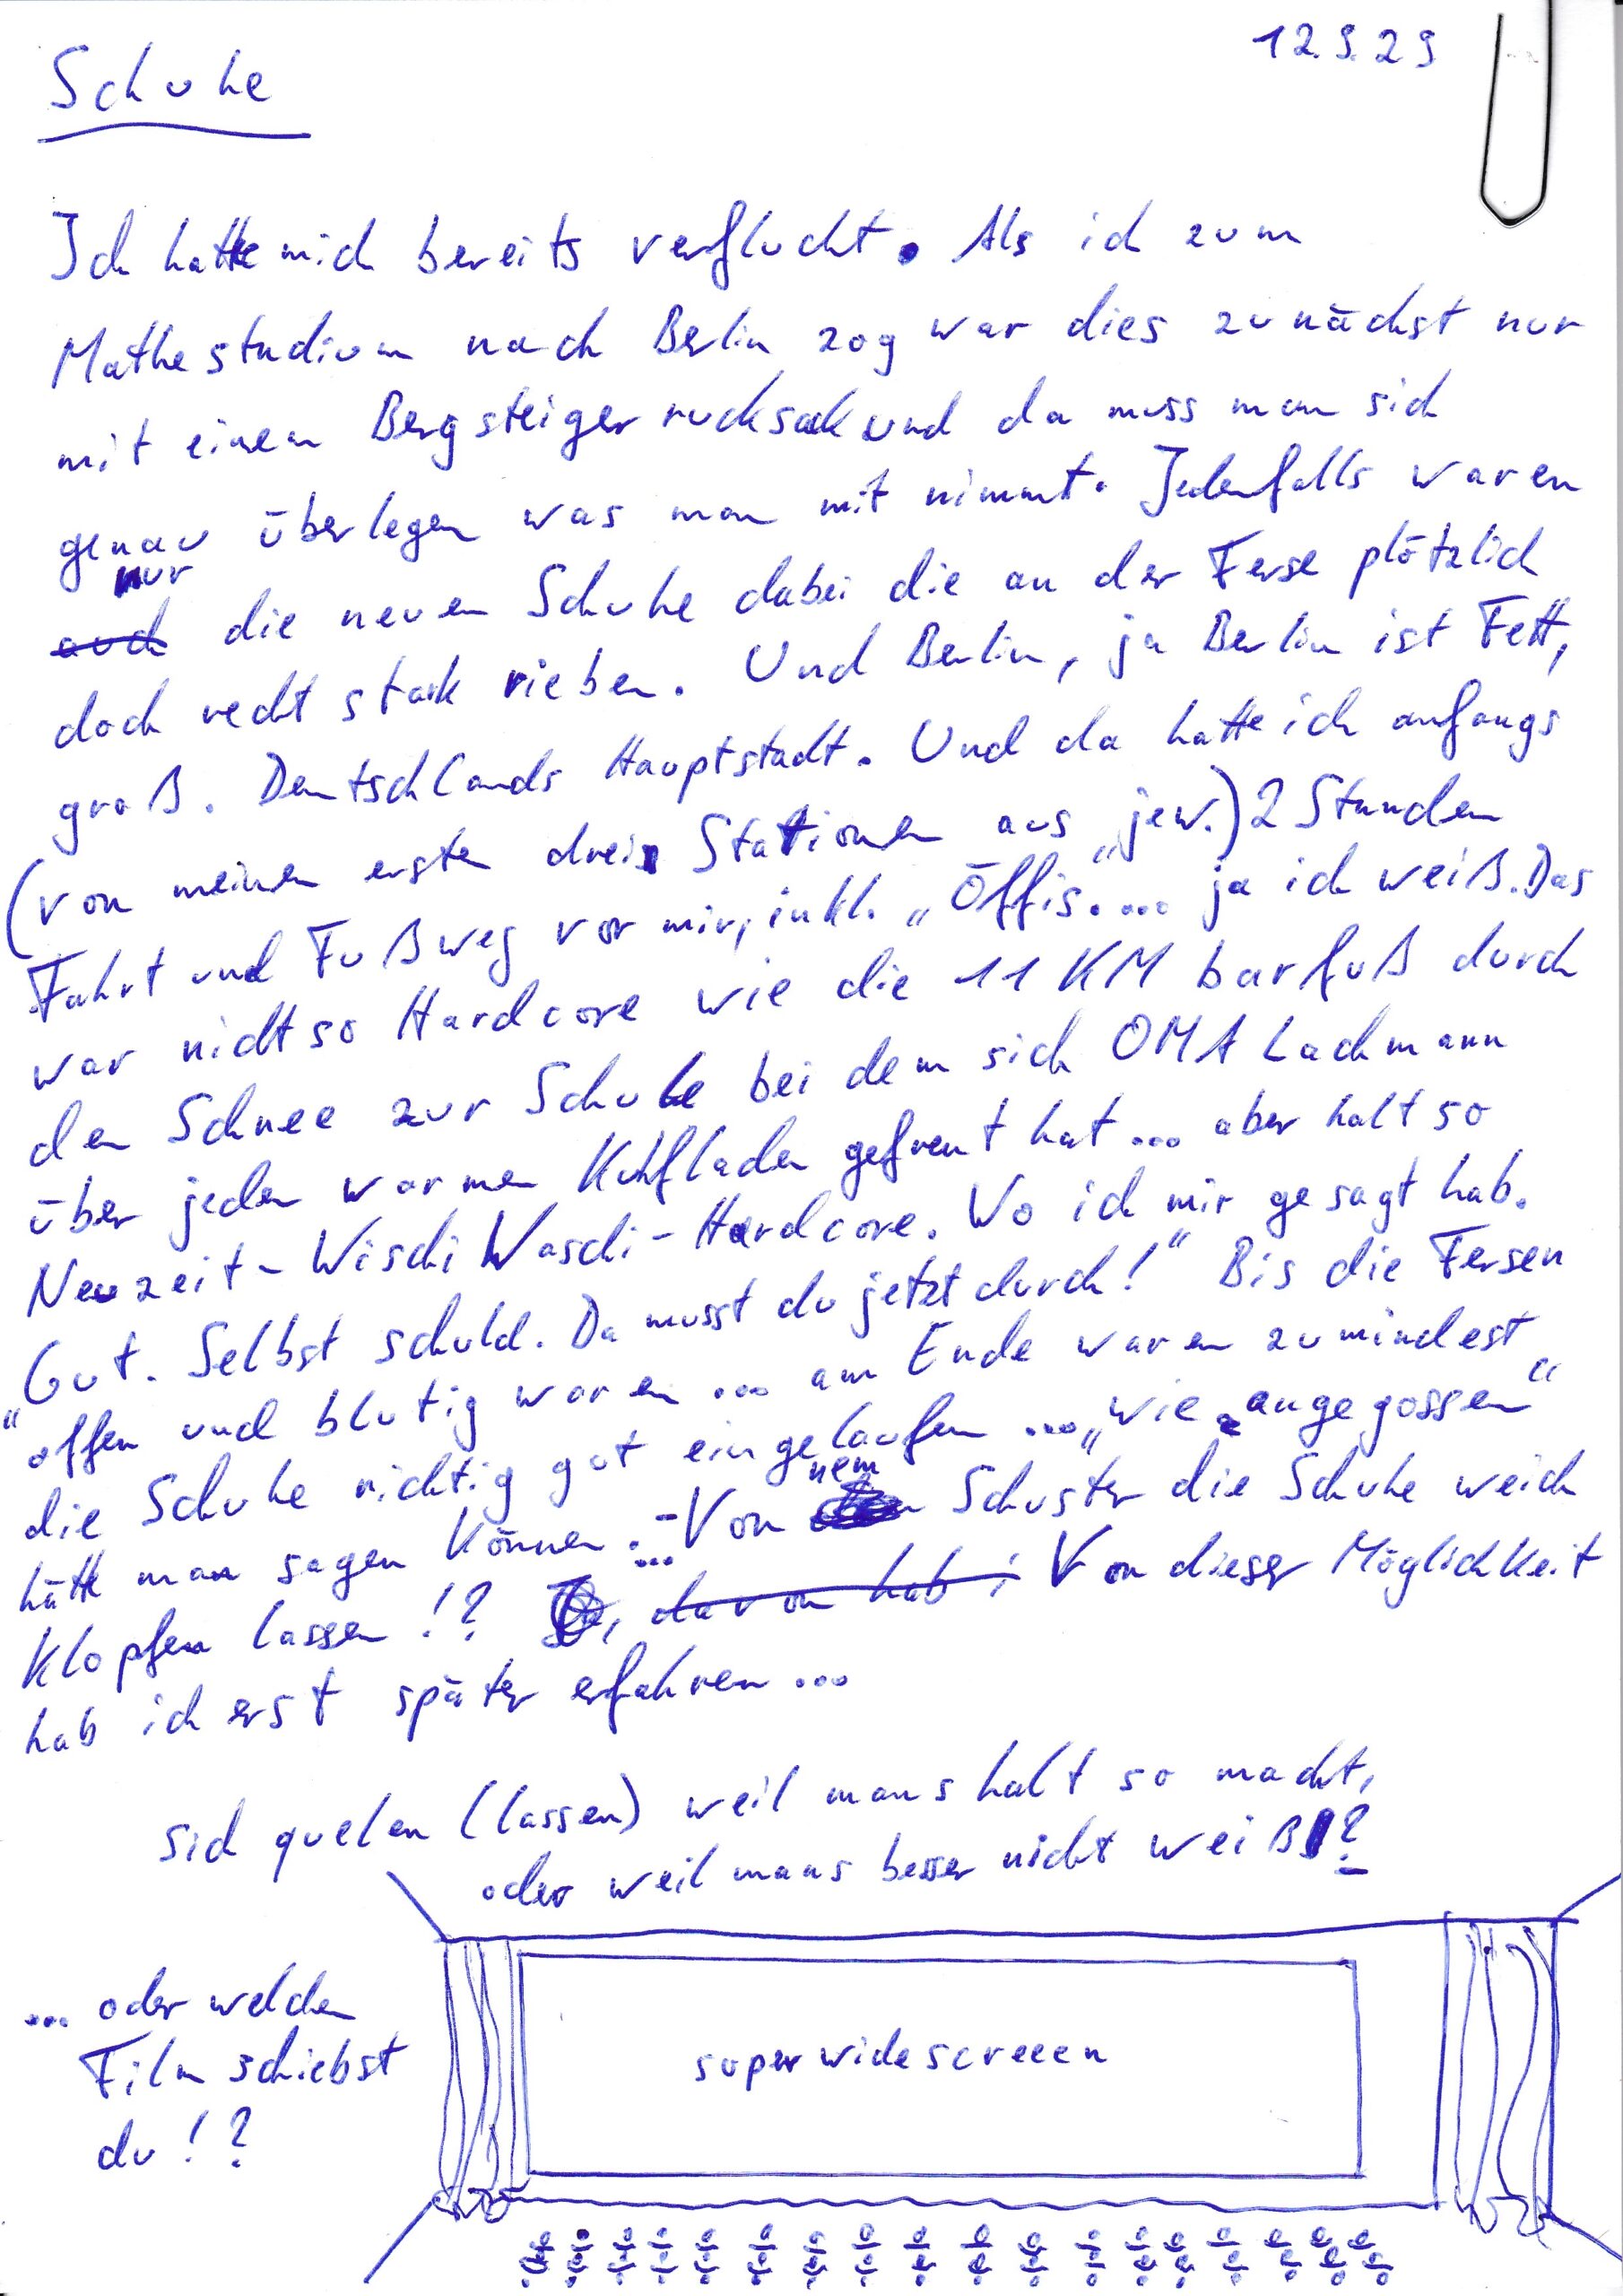 12.9.29
Schuhe
Ich hatte mich bereits verflucht. Als ich zum
Mathestudium nach Berlin zog war dies zunächst nur
mit einem Bergsteigerrucksack und da muss man sich
genau überlegen was man mit nimmt. Jedenfalls waren
nur
auch die neuen Schuhe dabei die an der Ferse plötzlich
doch recht stark rieben. Und Berlin, ja Berlin ist Fett,
groß. Deutschlands Hauptstadt. Und da hatte ich anfangs
(von meinen ersten drei Stationen aus „jew.) 2 Stunden
Fahrt und Fußweg vor mir, inkl. „Öffis.... ja ich weiß. Das
war nicht so Hardcore wie die 11 KM barfuß durch
den Schnee zur Schule bei dem sich OMA Lachmann
über jeden warmen Kuhfladen gefreut hat ... aber halt so
Neuzeit-WischiWaschi-Hardcore. Wo ich mir gesagt hab.
„Gut. Selbst schuld. Da musst du jetzt durch!" Bis die Fersen
offen und blutig waren ... am Ende waren zumindest
die Schuhe richtig gut eingelaufen ... „wie angegossen"
hätte man sagen können. ... - Von nem Schuster die Schuhe weich
klopfen lassen !? davon hab i Von dieser Möglichkeit
hab ich erst später erfahren ...
sich quelen (lassen) weil mans halt so macht,
oder weil mans besser nicht weiß?
... oder welchen
Film schiebst
du !?
super widescreeen